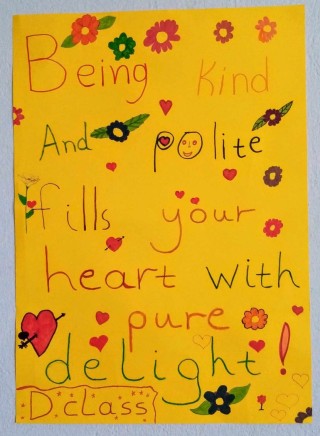 Being kind
And polite
fills your
heart with
pure
delight!
D.class